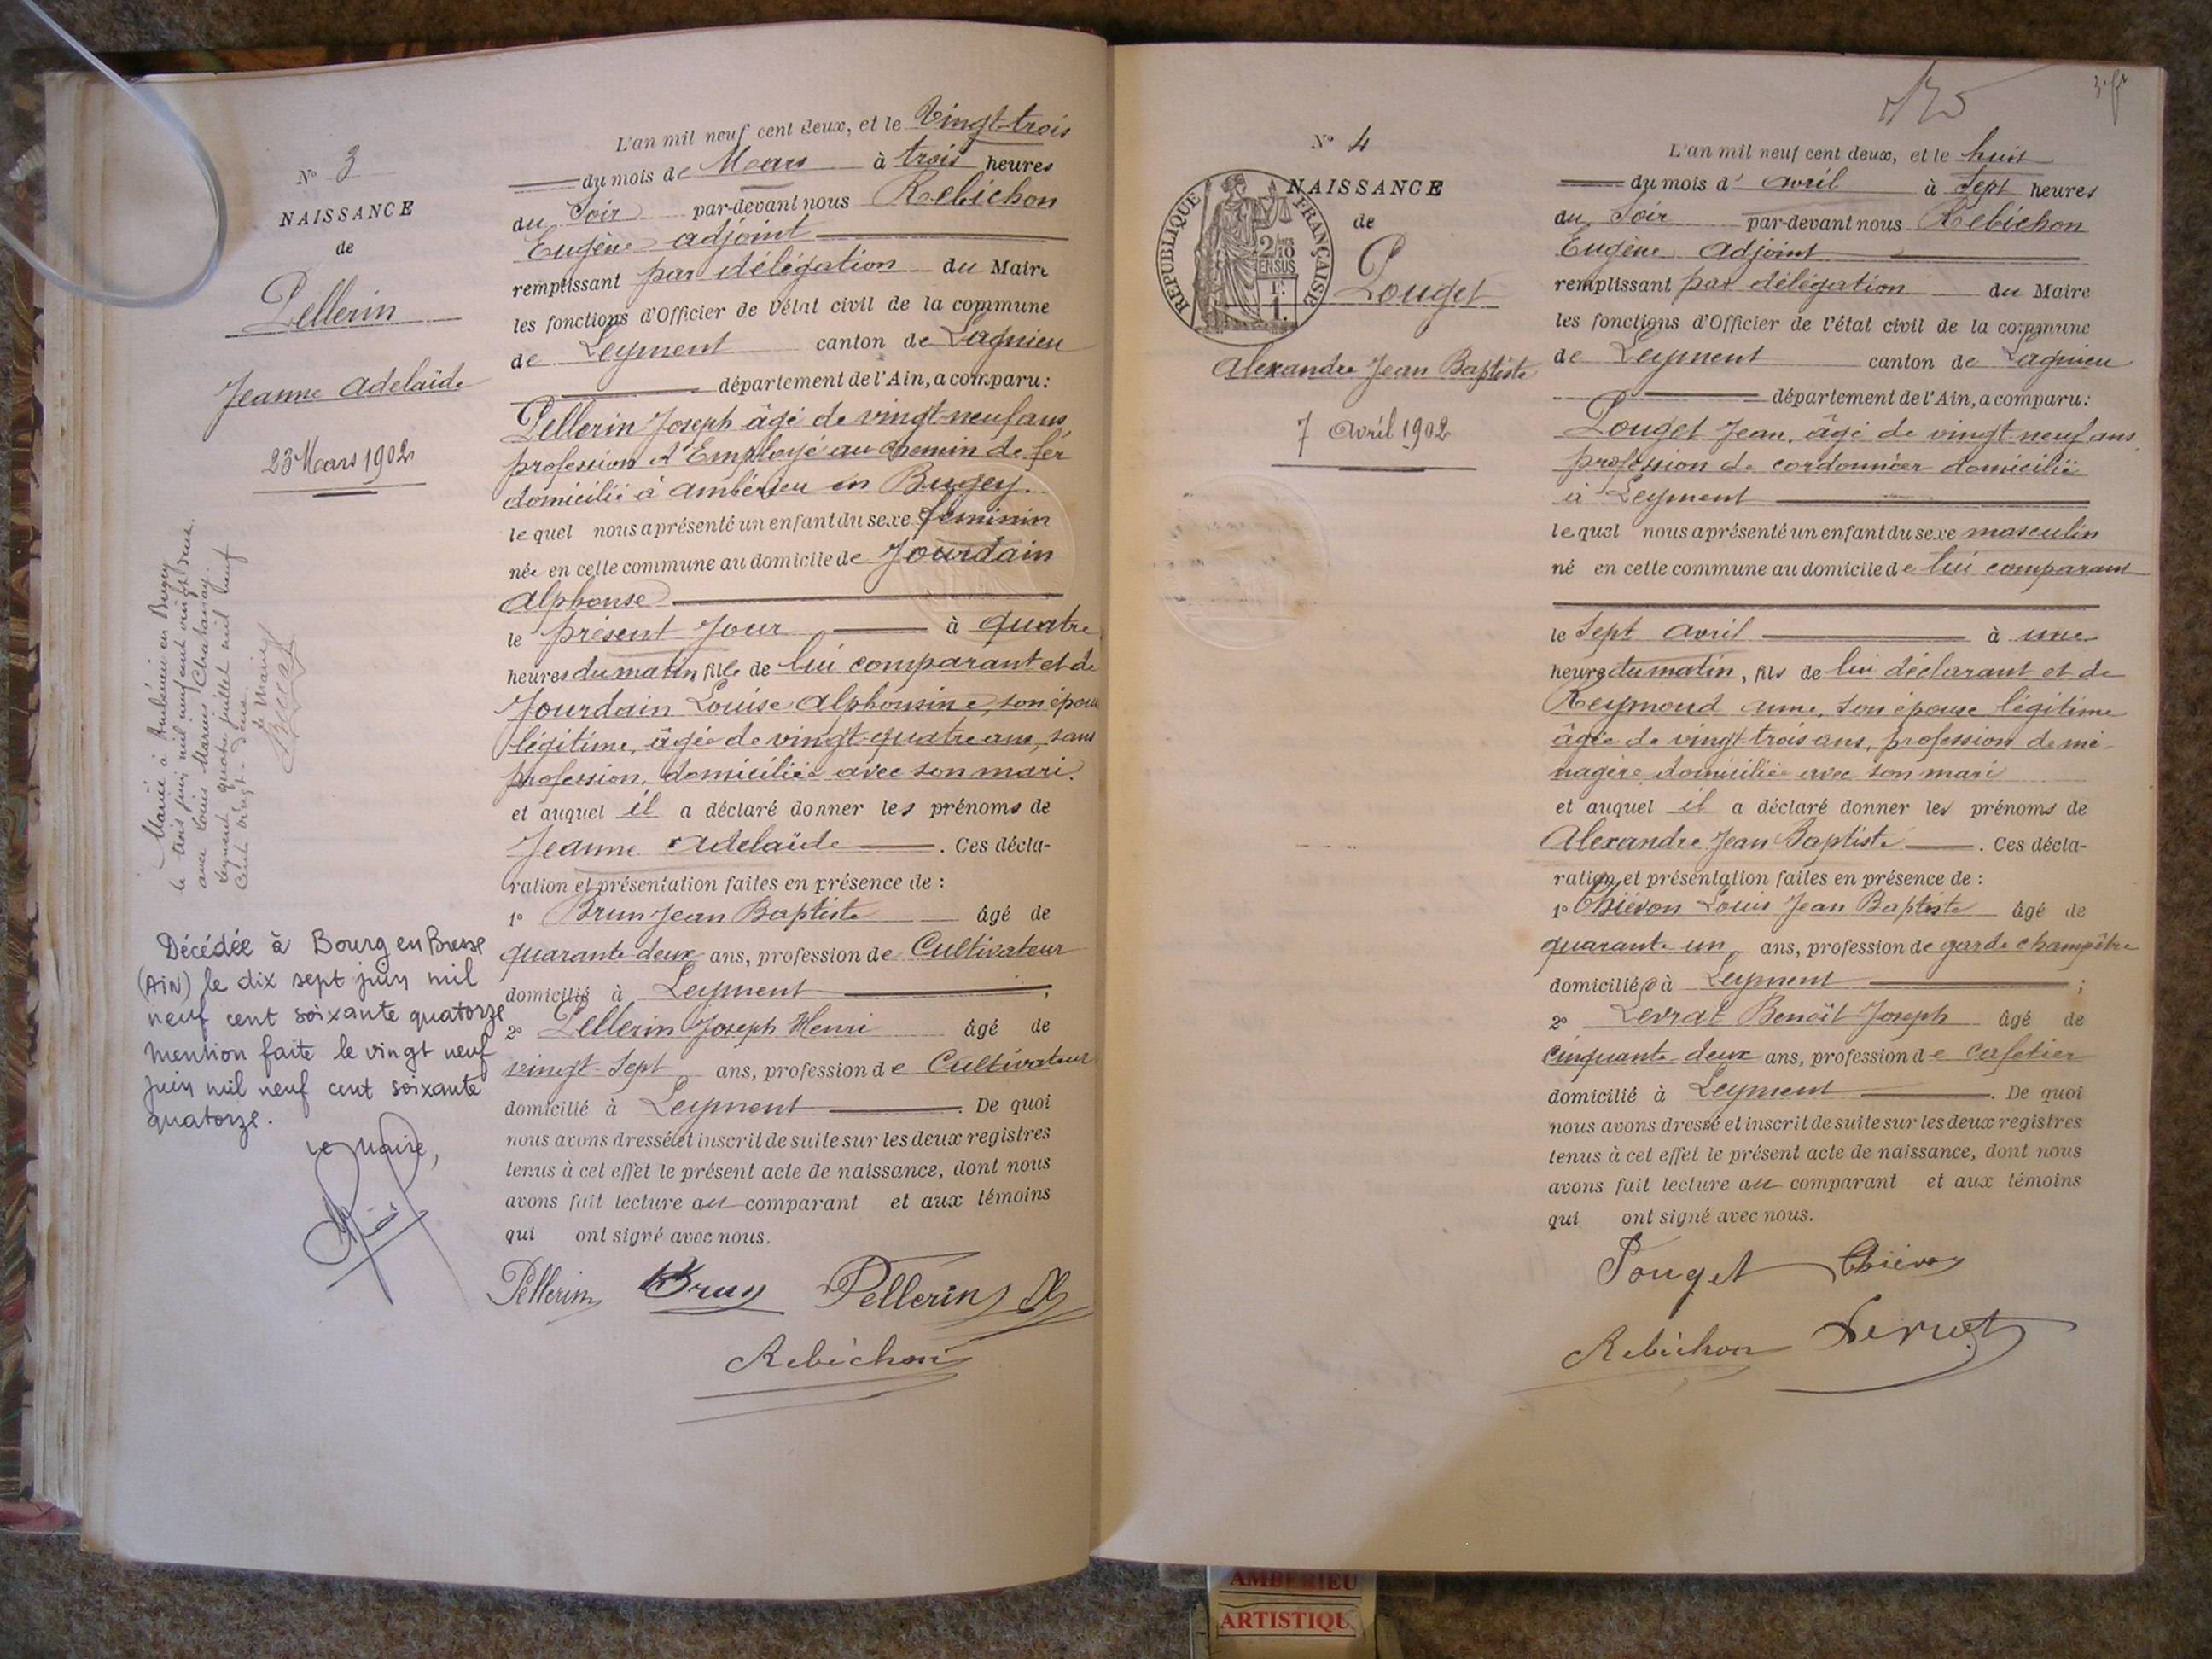 N° 3
NAISSANCE
de
Pellerin
Jeanne Adelaïde
23 Mars 1902
Mariée à Ambérieu en Bugey
le trois juin mil neuf cent vingt deux
avec Louis Marius Chatanay.
Leyment, quatre juillet mil neuf
cent vingt-deux.
le Maire
Décédée à Bourg en Bresse
(AIN) le dix sept juin mil
neuf cent soixante quatorze
mention faite le vingt neuf
juin mil neuf cent soixante
quatorze.
Le Maire,
L'an mil neuf cent deux, et le Vingt-trois
du mois de Mars à trois heures
du Soir par-devant nous Rebichon
Eugène adjoint
remplissant par délégation du Maire
les fonctions d'Officier de l'état civil de la commune
de Leyment canton de Lagnieu
département de l'Ain, a comparu:
Pellerin Joseph âgé de vingt-neuf ans,
profession d'Employé au chemin de fer
domicilié à Ambérieu en Bugey.
le quel nous a présenté un enfant du sexe féminin
née en cette commune au domicile de Jourdain
Alphonse
le présent Jour à quatre
heures du matin, fille de lui comparant et de
Jourdain Louise Alphonsine, son épouse
légitime, âgée de vingt-quatre ans, sans
profession, domiciliée avec son mari.
et auquel il a déclaré donner les prénoms de
Jeanne Adelaïde. Ces décla-
ration et présentation faites en présence de :
1° Brun Jean Baptiste âgé de
quarante-deux ans, profession de Cultivateur
domicilié à Leyment ;
2° Pellerin Joseph Henri âgé de
vingt-Sept ans, profession de Cultivateur
domicilié à Leyment. De quoi
nous avons dressé et inscrit de suite sur les deux registres
tenus à cet effet le présent acte de naissance, dont nous
avons fait lecture au comparant et aux témoins
qui ont signé avec nous.
Pellerin Brun Pellerin J H
Rebichon
N° 4
NAISSANCE
de
RÉPUBLIQUE FRANÇAISE
2/10
EN SUS
1 F.
Pouget
Alexandre Jean Baptiste
7 Avril 1902
L'an mil neuf cent deux, et le huit
du mois d' avril à Sept heures
du Soir par-devant nous Rebichon
Eugène Adjoint
remplissant par délégation du Maire
les fonctions d'Officier de l'état civil de la commune
de Leyment canton de Lagnieu
département de l'Ain, a comparu:
Pouget Jean, âgé de vingt-neuf ans
profession de cordonnier domicilié
à Leyment
le quel nous a présenté un enfant du sexe masculin
né en cette commune au domicile de lui comparant
le Sept avril à une
heure du matin, fils de lui déclarant et de
Reymond Anne, son épouse légitime
âgée de vingt-trois ans, profession de mé-
nagère domiciliée avec son mari
et auquel il a déclaré donner les prénoms de
Alexandre Jean Baptiste. Ces décla-
ration et présentation faites en présence de :
1° Chiévon Louis Jean Baptiste âgé de
quarante un ans, profession de garde champêtre
domicilié à Leyment ;
2° Levrat Benoît Joseph âgé de
cinquante-deux ans, profession de cafetier
domicilié à Leyment. De quoi
nous avons dressé et inscrit de suite sur les deux registres
tenus à cet effet le présent acte de naissance, dont nous
avons fait lecture au comparant et aux témoins
qui ont signé avec nous.
Pouget Chiévon
Rebichon Levrat
AMBERIEU
ARTISTIQU